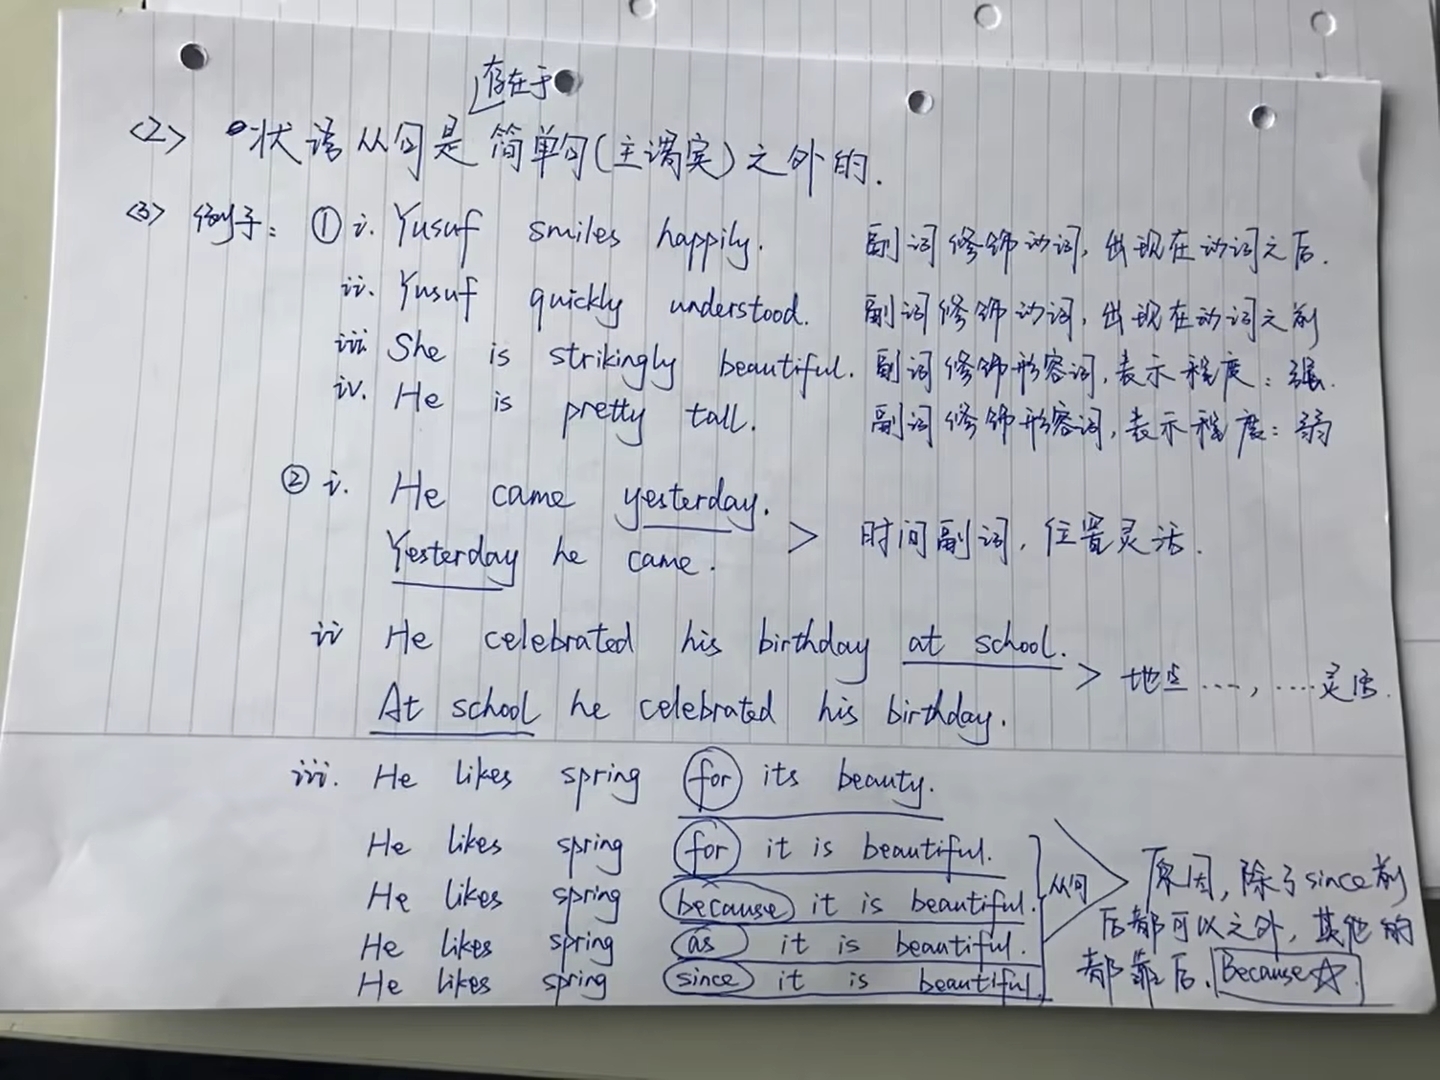 存在于
<2> 状语从句是简单句(主谓宾)之外的.
<3> 例子: ① i. Yusuf smiles happily. 副词修饰动词, 出现在动词之后.
ii. Yusuf quickly understood. 副词修饰动词, 出现在动词之前
iii She is strikingly beautiful. 副词修饰形容词, 表示程度: 强.
iv. He is pretty tall. 副词修饰形容词, 表示程度: 弱
② i. He came yesterday.
Yesterday he came. > 时间副词, 位置灵活.
ii He celebrated his birthday at school.
At school he celebrated his birthday. > 地点 ...., .... 灵活.
iii. He likes spring for its beauty.
He likes spring for it is beautiful.
He likes spring because it is beautiful.
He likes spring as it is beautiful.
He likes spring since it is beautiful.
从句
原因, 除了since前
后都可以之外, 其他的
都靠后. Because☆.